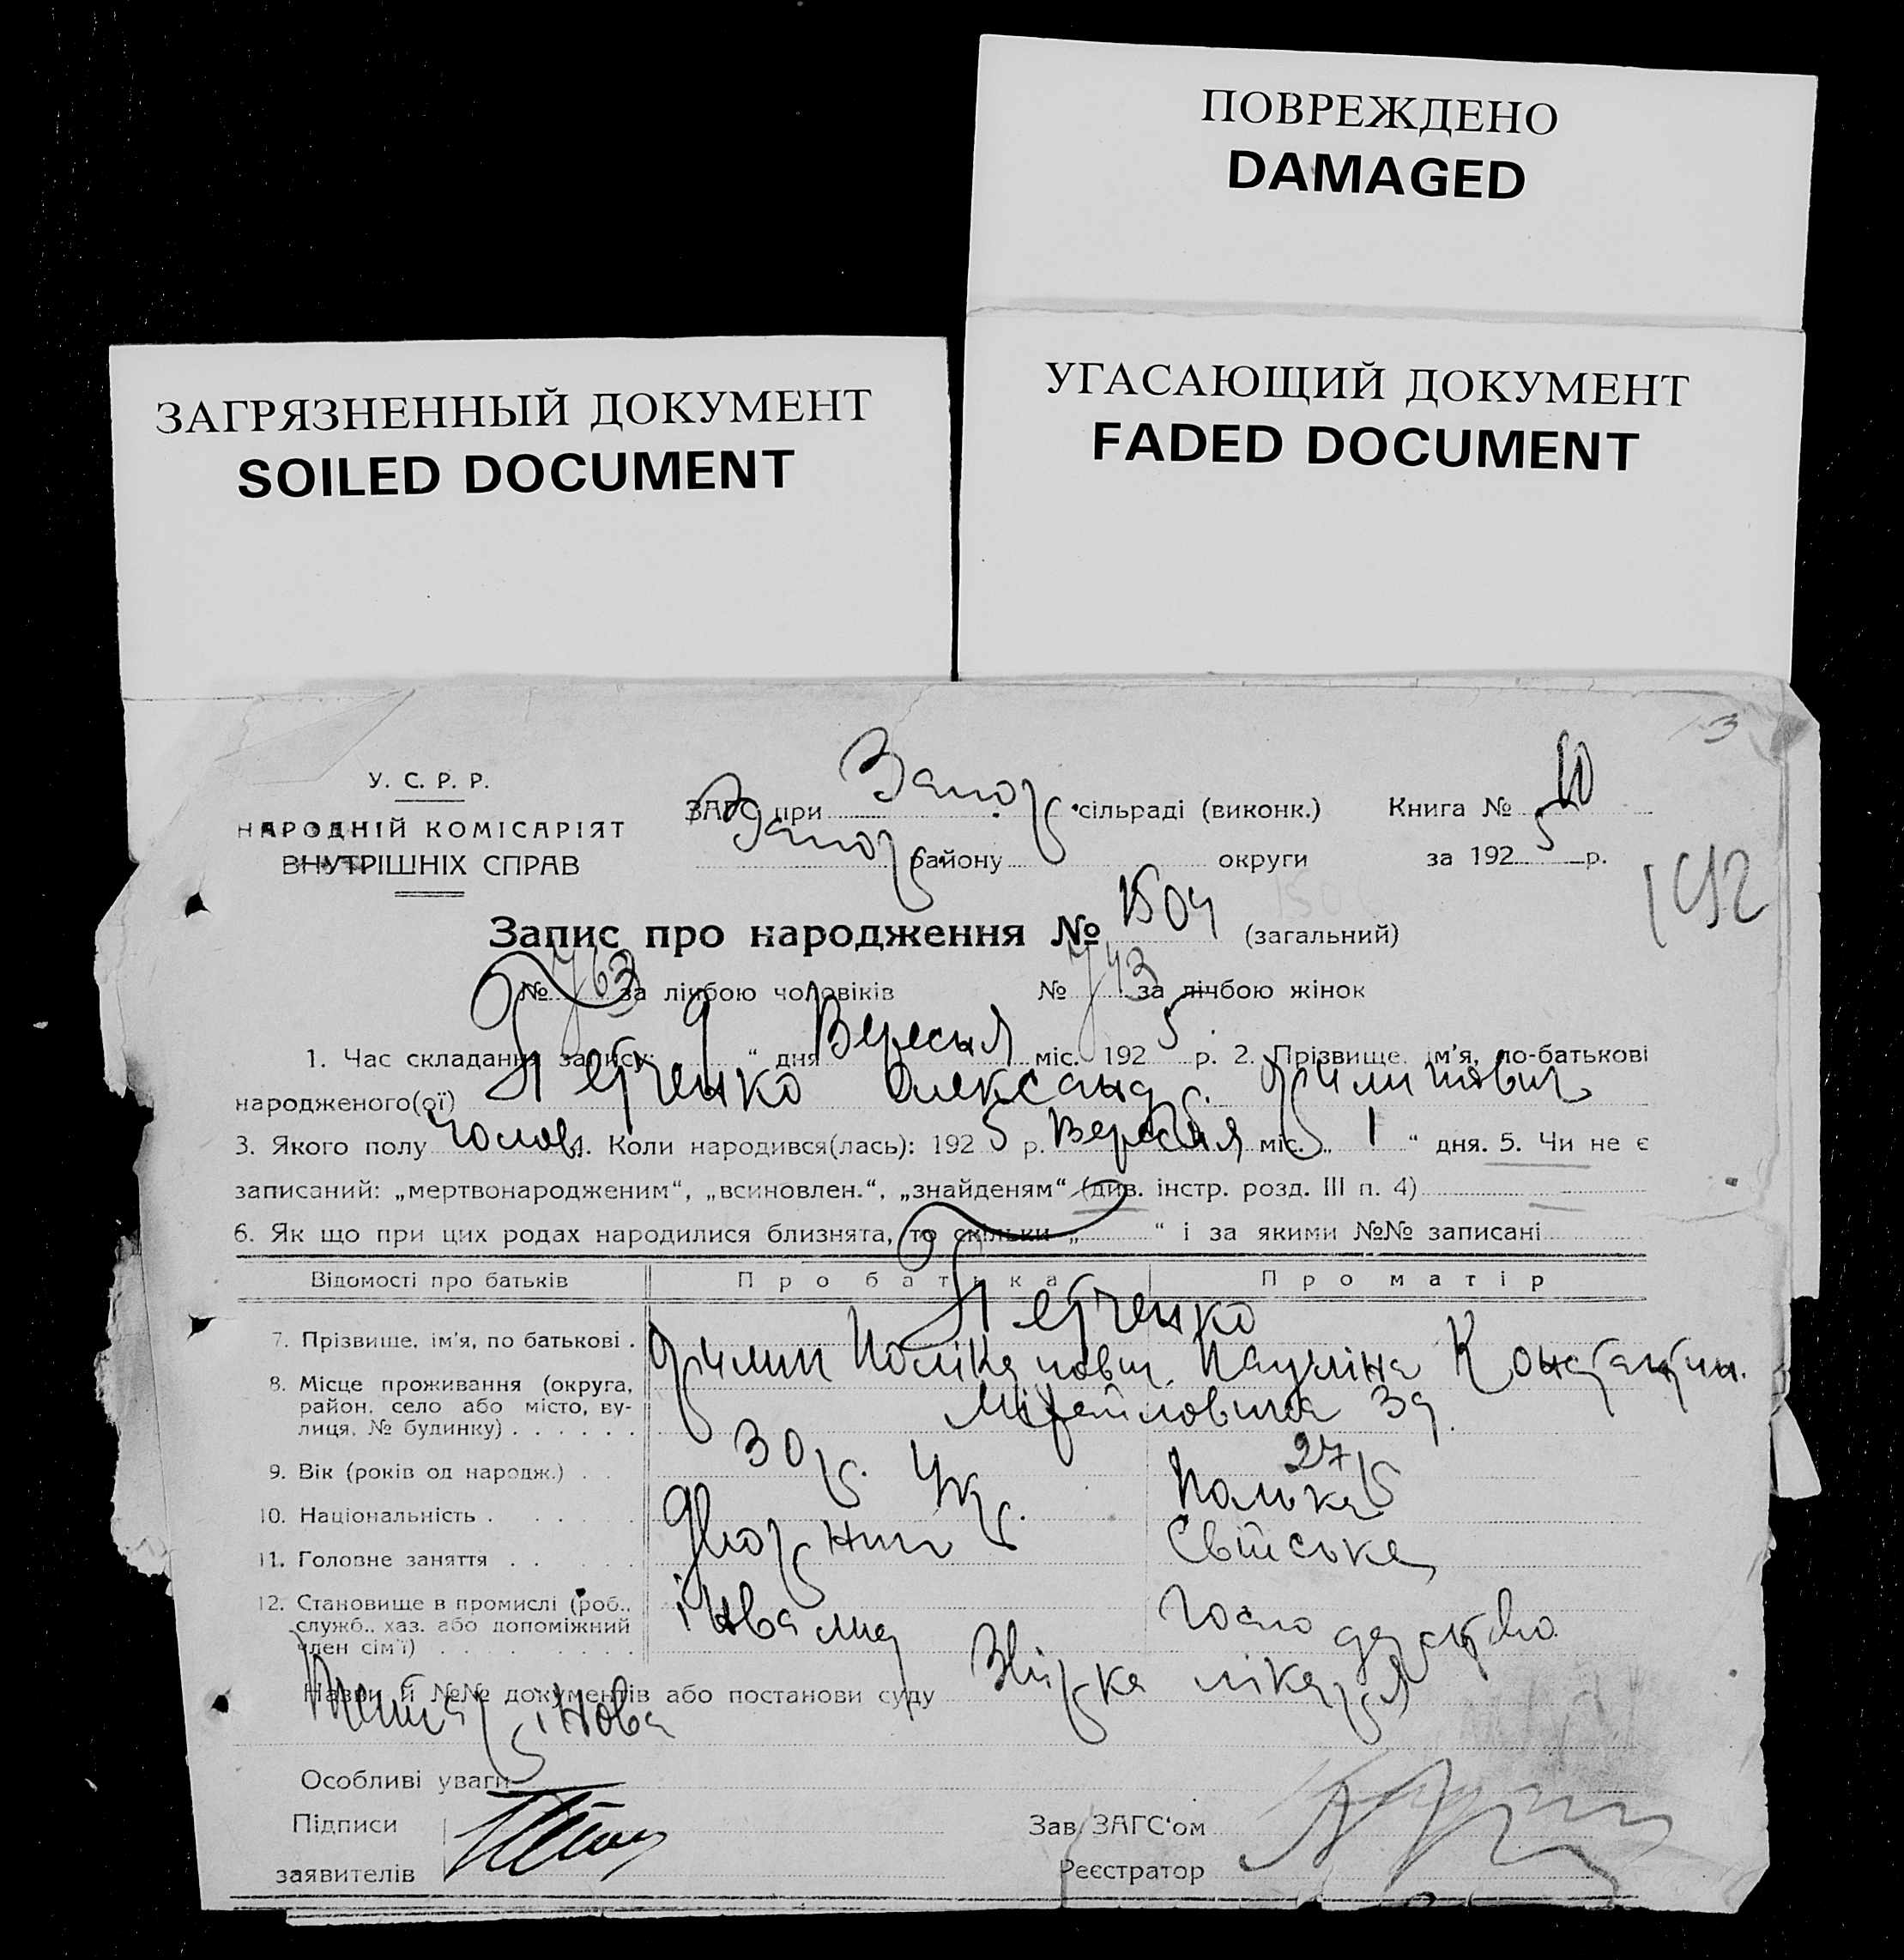 ПОВРЕЖДЕНО
DAMAGED
ЗАГРЯЗНЕННЫЙ ДОКУМЕНТ
SOILED DOCUMENT
УГАСАЮЩИЙ ДОКУМЕНТ
FADED DOCUMENT
3
У. С. Р. Р.
НАРОДНІЙ КОМІСАРІЯТ
ВНУТРІШНІХ СПРАВ
ЗАГС при Запор. сільраді (виконк.) Книга № 10
Запор району округи за 1925 р.
192
Запис про народження № 1504 (загальний)
№ 763 за лічбою чоловіків № 743 за лічбою жінок
1. Час складання запису: 9 “ дня Вересня міс. 1925 р. 2. Прізвище, ім'я, по-батькові
народженого(ої) Петченко Олександр.
3. Якого полу Чолов. 4. Коли народився(лась): 1925 р. Вересня міс. „ 1 “ дня. 5. Чи не є
записаний: „мертвонародженим“, „всиновлен.“, „знайденям“ (див. інстр. розд. III п. 4)
6. Як що при цих родах народилися близнята, то скільки „ “ і за якими №№ записані
Відомості про батьків Про батька Про матір
Петченко
7. Прізвище, ім'я, по батькові . Полікапович. Пауліна Константин.
8. Місце проживання (округа, район, село або місто, вулиця, № будинку) . . . . . . Міхайловська 39.
9. Вік (років од народж.) . . 30 р. 27 р
10. Національність . . . . . Укр. Полька
11. Головне заняття . . . . . Двор­ник Свійське
12. Становище в промислі (роб., служб., хаз. або допоміжний член сім'ї) . . . . . . . . інвалид господарство
Назви й №№ документів або постанови суду Звірка лікаря
Особливі уваги
Підписи
заявителів
Зав. ЗАГС'ом
Реєстратор